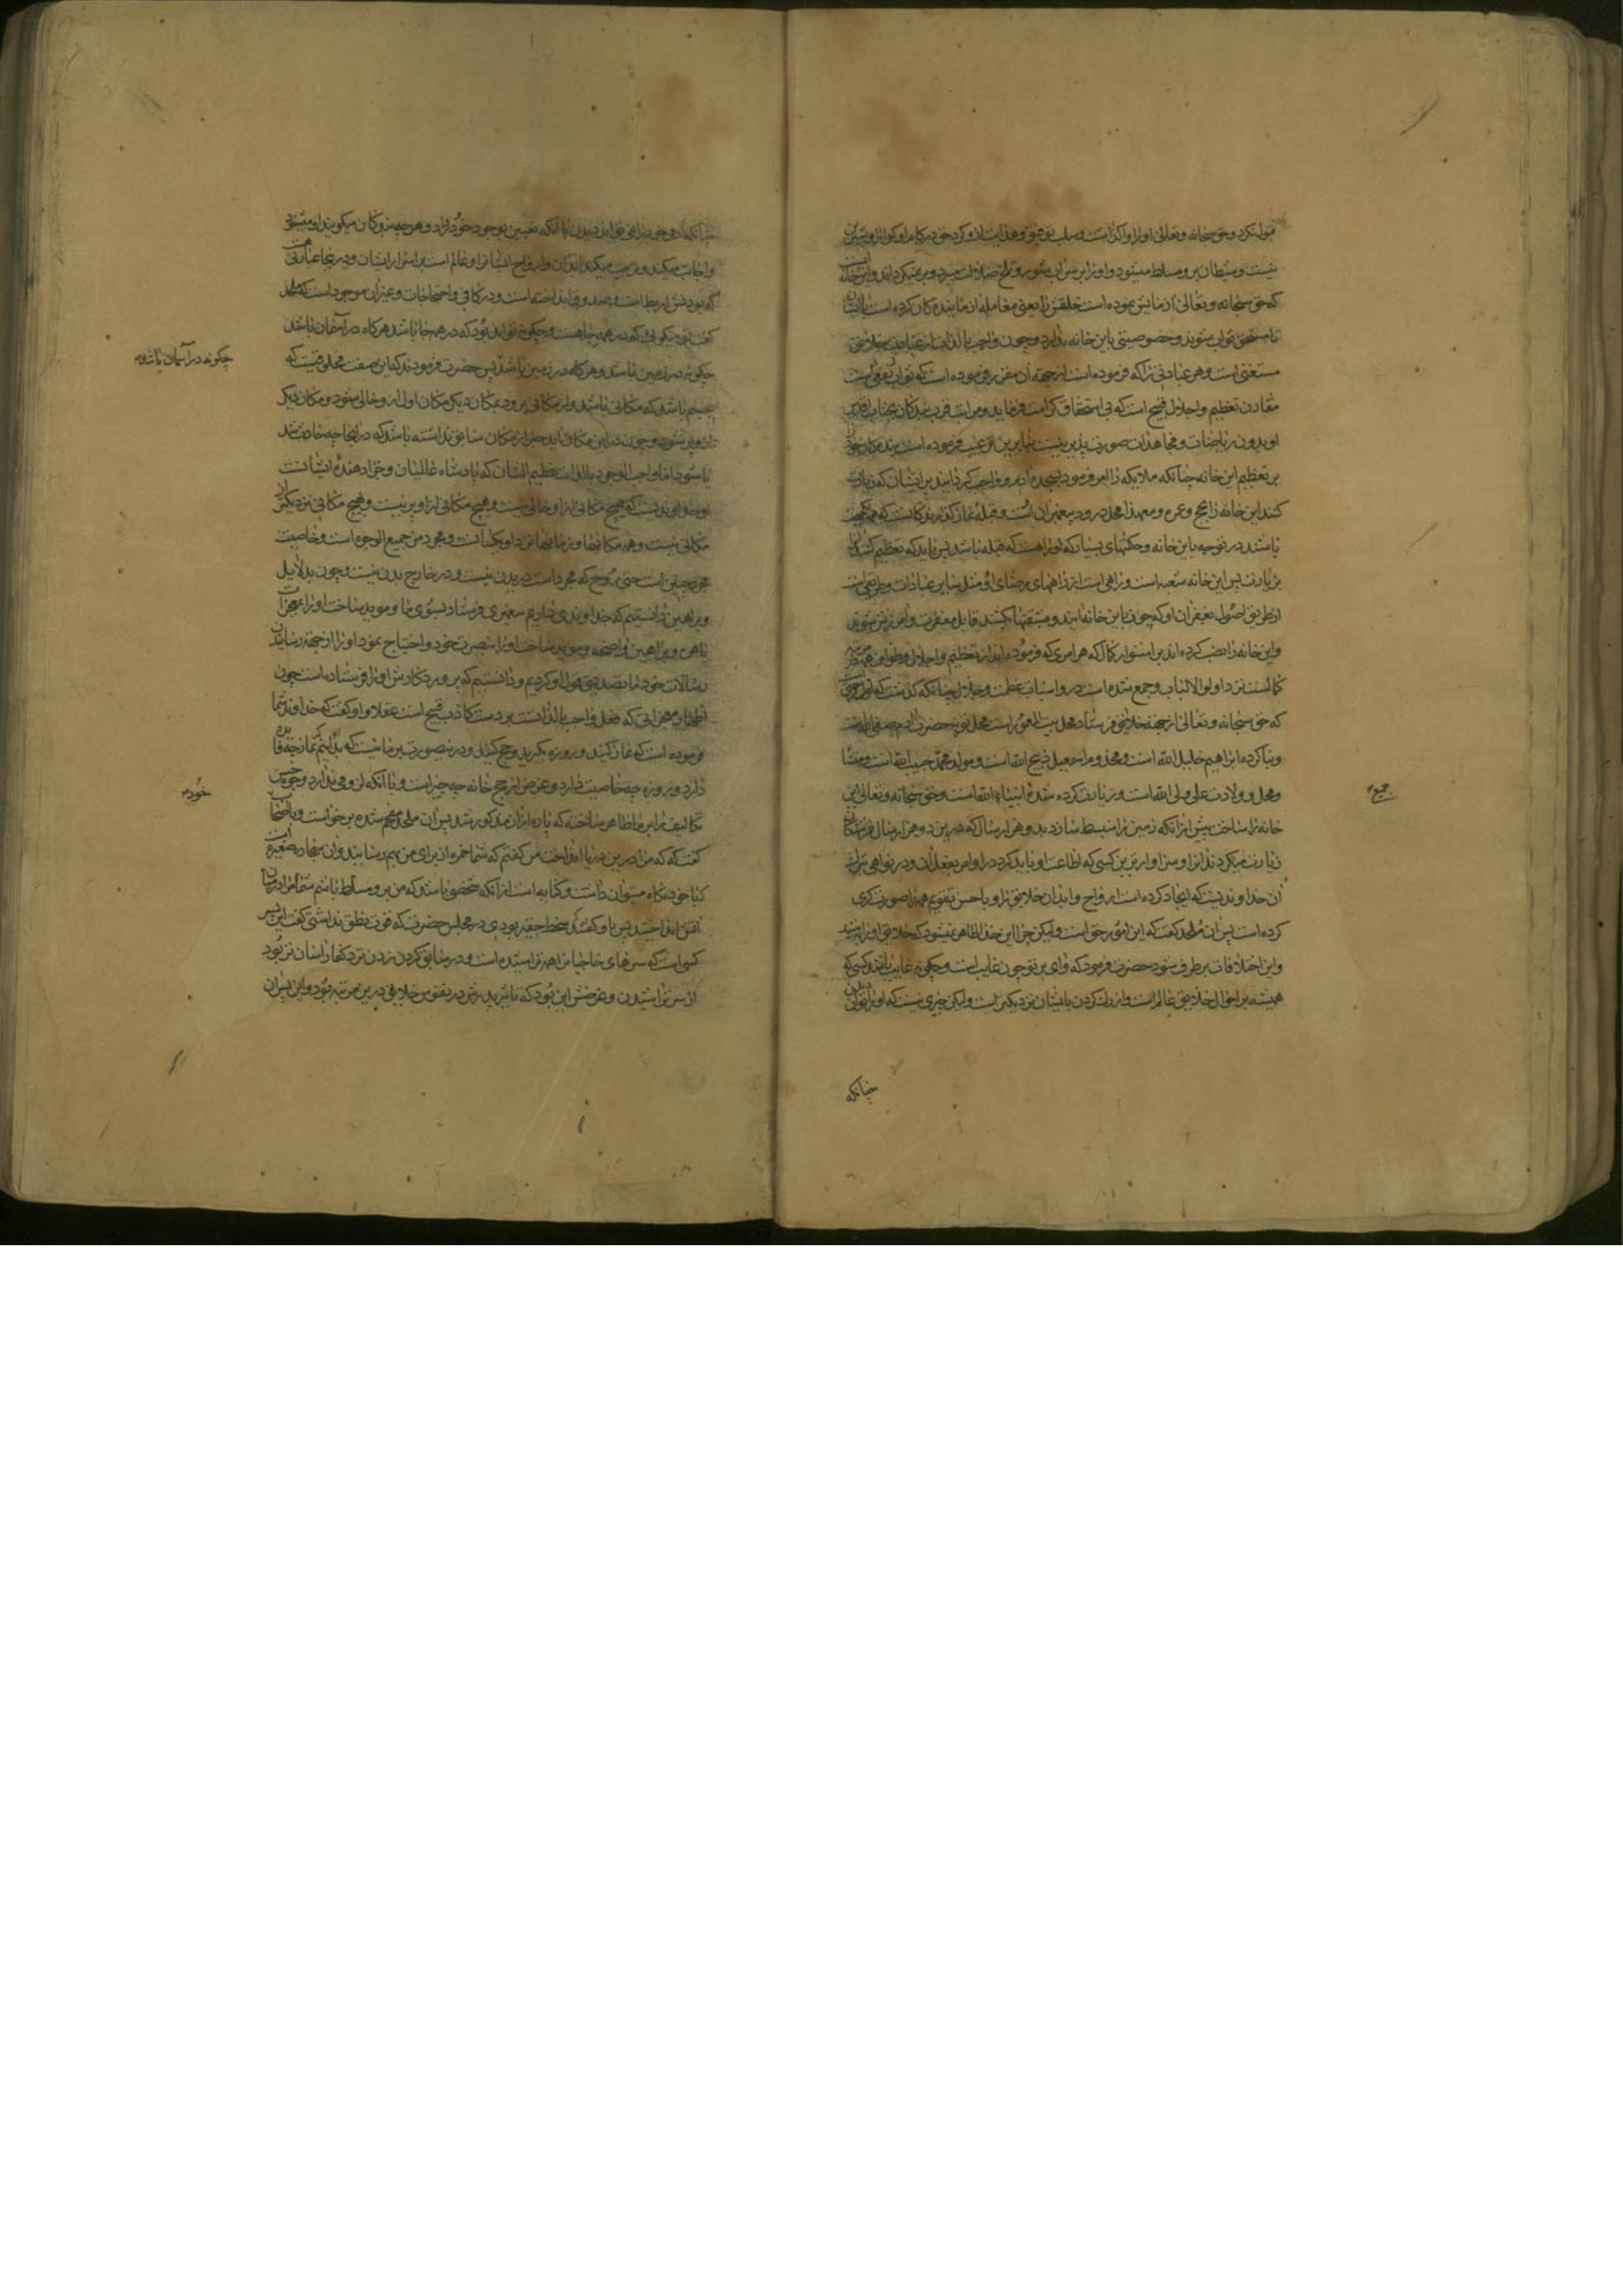 قبول نکرد و حق سبحانه و تعالی او را وا گذاشت و سلب توفیق و هدایت ازو کرد حق در کام او گوارا و شیرین
نیست و شیطان برو مسلط میشود و او را بر سر آب شور و تلخ ضلالت میبرد و بر نمیگرداند و این خانه
که حق سبحانه و تعالی آزمایش نموده است خلقش را یعنی معامله آزمایندکان کرده است با ایشان
تا مستحق ثواب شوند و خصوصیتی باین خانه ندارد و چون واجب بالذات از عبادت خلایق
مستغنی است و هر عبادتی را که فرموده است از جهة آن مقرر فرموده است که ثواب نفعی است
مقارن تعظیم و اجلال قبیح است که بی استحقاق کرامت فرماید و مراتب قرب بندکان بجناب اقدس
او بدون ریاضات و مجاهدات صورت پذیر نیست بنابرین ترغیب فرموده است بندکان خود را
بر تعظیم این خانه چنانکه ملایکه را امر فرمود بسجده آدم و واجب کردانید بر ایشان که زیارت
کنند این خانه را بحج و عمره و معهذا محل ورود پیغمبران است و قبله نماز کذارندکانست که همکی
باشند در توجه باین خانه و حکمتهای بسیار که او را هست که قبله باشد پس باید که تعظیم کنند آن را
بزیارت پس این خانه شعبه است و راهی است از راههای رضای او مثل سایر عبادات و طریقی است
از طریق اصول بغفران او که چون باین خانه آیند و مشقتها بکشند قابل مغفرت و آمرزش شوند
و این خانه را نصب کرده اند بر استوار کمال که هر امری که فرموده اند از تعظیم و اجلال و طواف همه در مرتبه
کمالست نزد اولوالالباب و جمع شده است درو اسباب عظمت و جلال چنانکه کذشت که اول خانه
که حق سبحانه و تعالی از جهة خلایق فرستاد محل بیت المعمور است محل توبه حضرت آدم صفی الله است
و بنا کرده ابراهیم خلیل الله است و محل و مراسمعیل ذبیح الله است و مولد محمد حبیب الله است و منشا
و محل و ولادت علی ولی الله است و زیارت کرده شده انبیاء الله است و حق سبحانه و تعالی این
خانه را ساخت پیش از آنکه زمین را منبسط سازد بدو هزار سال که درین دو هزار سال فرشتکان
زیارت میکردند آنرا و سزاوارترین کسی که اطاعت او باید کرد در اوامر بفعل آن و در نواهی بترک
آن خداوندیست که ایجاد کرده است ارواح و ابدان خلایق را و باحسن تقویم همه را صورت کری
کرده است پس آن ملحد کفت که این امور حق است ولیکن چرا این خدا ظاهر نمیشود که خلایق او را ببینند
و این اختلافات برطرف شود حضرت فرمود که وای بر تو چون غایب است و چکونه غایب باشد کسی که
همیشه بر احوال خلایق عالم است و از رک کردن بایشان نزدیکتر است ولیکن چیزی نیست که او را توان دیدن
چنانکه
جمیع
چنانکه آدمی خود را نمی تواند دیدن با آنکه یقین بوجود خود دارد و هر چه بندکان میکویند او میشنود
و اجابت میکند و تربیت میکند ابدان و ارواح ایشانرا و عالم است بر اسرار ایشان و در بعضا عباراتی هست
کفت پس تو میکویی که در همه جا هست و چکونه تواند بود که در همه جا باشد هرکاه در آسمان باشد
چکونه در زمین باشد و هرکاه در زمین باشد پس حضرت فرمودند که این صفت مخلوقیست که
جسم باشد که مکانی باشد و از مکانی برود بمکان دیکر مکان اول ازو خالی شود و مکان دیکر
ازو پر شود و چون در این مکان آید خبر از مکان سابق نداشته باشد که در آنجا چه حادث شد
یا شود اما واجب الوجود بالذات عظیم الشان که پادشاه عالمیان و جزا دهندهٔ ایشانست
او خداوندیست که هیچ مکانی ازو خالی نیست و هیچ مکانی ازو پر نیست و بهیچ مکانی نزدیکتر از
مکانی نیست و همه مکانها و زمانها نزد او یکسانست و مجرد من جمیع الوجوه است و خاصیت
مجرد چنین است حتی روح که مجرد است در بدن نیست و در خارج بدن نیست و چون بدلایل
و براهین دانستیم که خداوندی داریم پیغمبری فرستاد بسوی ما و موید ساخت او را بمعجزات
باهره و براهین واضحه و موید ساخت او را بنصرت خود و اختیار نمود او را از جهة رسانیدن
رسالات خود ما تصدیق قول او کردیم و دانستیم که پروردکارش او را فرستاده است چون
اظهار معجزاتی که فعل واجب بالذات است بر دست کاذب قبیح است عقلا و او کفت که خداوند شما
فرموده است که نماز کنید و روزه بکیرید و حج کنید و درینصورت بر ما نیست که بدانیم که نماز چه فایده
دارد و روزه چه خاصیت دارد و غرض از حج خانه چه چیز است و با آنکه لزومی ندارد وجوه حسن
تکالیف را بر ما ظاهر ساخته که پاره از آن مذکور شد پس آن ملحد ملجم شده برخواست و باصحاب
کفت که که مرا درین دریا انداخت من کفتم که شما خمره از برای من بهم رسانید و آن سجاده صغیره است
کسی است که سرهای حاجیان را همه تراشیده است و در سابق کردن زدن نزد کفار آسان تر بود
از سر تراشیدن و غرضش این بود که تاثیر پدرش در نفوس خلایق درین مرتبه بود و این پسر آن
چکونه در آسمان باشد
خود